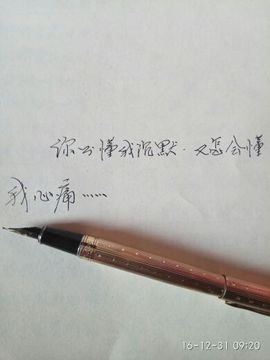 你不懂我沉默.又怎会懂
我心痛……
16-12-31 09:20